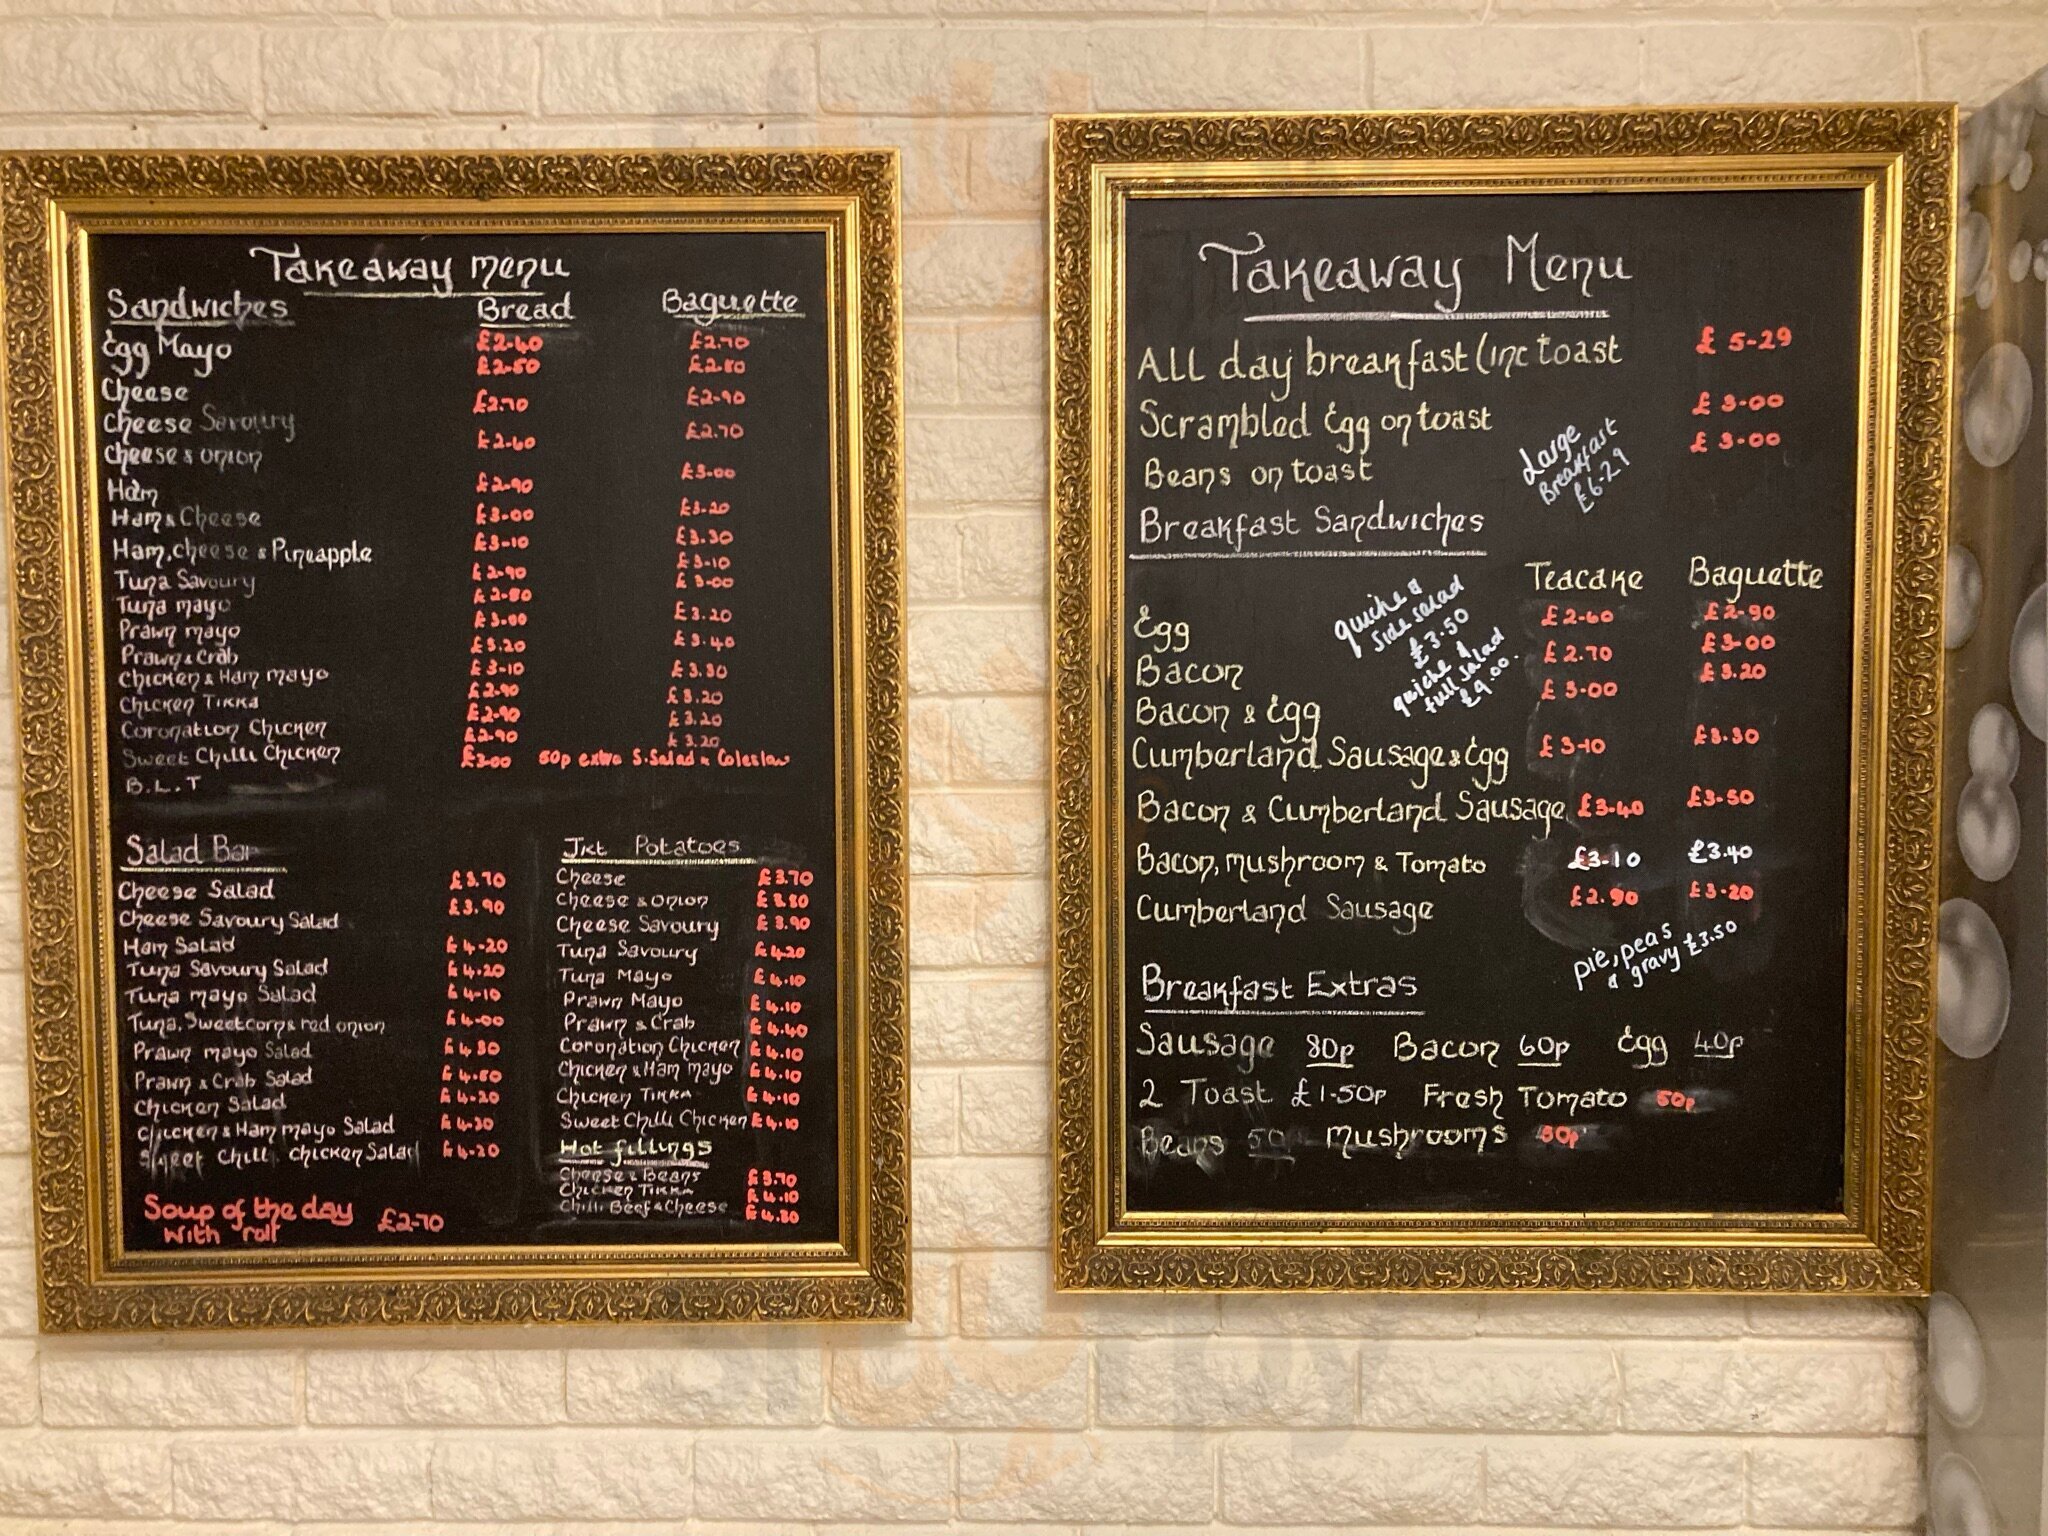 Takeaway menu
Sandwiches Bread Baguette
Egg Mayo £2.40 £2.70
Cheese £2.50 £2.80
Cheese Savoury £2.70 £2.90
Cheese & onion £2.60 £2.70
Ham £2.90 £3.00
Ham & Cheese £3.00 £3.20
Ham, cheese & Pineapple £3.10 £3.30
Tuna Savoury £2.90 £3.10
Tuna mayo £2.80 £3.00
Prawn mayo £3.00 £3.20
Prawn & Crab £3.20 £3.40
Chicken & Ham mayo £3.10 £3.30
Chicken Tikka £2.90 £3.20
Coronation Chicken £2.90 £3.20
Sweet Chilli Chicken £2.90 £3.20
B.L.T £3.00 50p extra S.Salad & Coleslaw
Salad Bar
Cheese Salad £3.70
Cheese Savoury Salad £3.90
Ham Salad £4.20
Tuna Savoury Salad £4.20
Tuna mayo Salad £4.10
Tuna, Sweetcorn & red onion £4.00
Prawn mayo Salad £4.30
Prawn & Crab Salad £4.50
Chicken Salad £4.20
Chicken & Ham mayo Salad £4.30
Sweet Chilli Chicken Salad £4.20
Soup of the day
With roll £2.70
Jkt Potatoes
Cheese £3.70
Cheese & onion £3.80
Cheese Savoury £3.90
Tuna Savoury £4.20
Tuna Mayo £4.10
Prawn Mayo £4.10
Prawn & Crab £4.40
Coronation Chicken £4.10
Chicken & Ham mayo £4.10
Chicken Tikka £4.10
Sweet Chilli Chicken £4.10
Hot fillings
Cheese & Beans £3.70
Chicken Tikka £4.10
Chilli Beef & Cheese £4.30
Takeaway Menu
All day breakfast (inc toast £5-29
Scrambled Egg on toast £3-00
Beans on toast £3-00
Large
Breakfast
£6-29
Breakfast Sandwiches
Teacake Baguette
Egg £2-60 £2-90
Bacon £2.70 £3-00
Bacon & Egg £3-00 £3.20
Cumberland Sausage & Egg £3-10 £3.30
Bacon & Cumberland Sausage £3-40 £3-50
Bacon, mushroom & Tomato £3-10 £3.40
Cumberland Sausage £2.90 £3-20
quiche &
side salad
£3.50
quiche &
full salad
£4.00.
pie, peas
& gravy £3.50
Breakfast Extras
Sausage 80p Bacon 60p Egg 40p
2 Toast £1-50p Fresh Tomato 50p
Beans 50 Mushrooms 50p